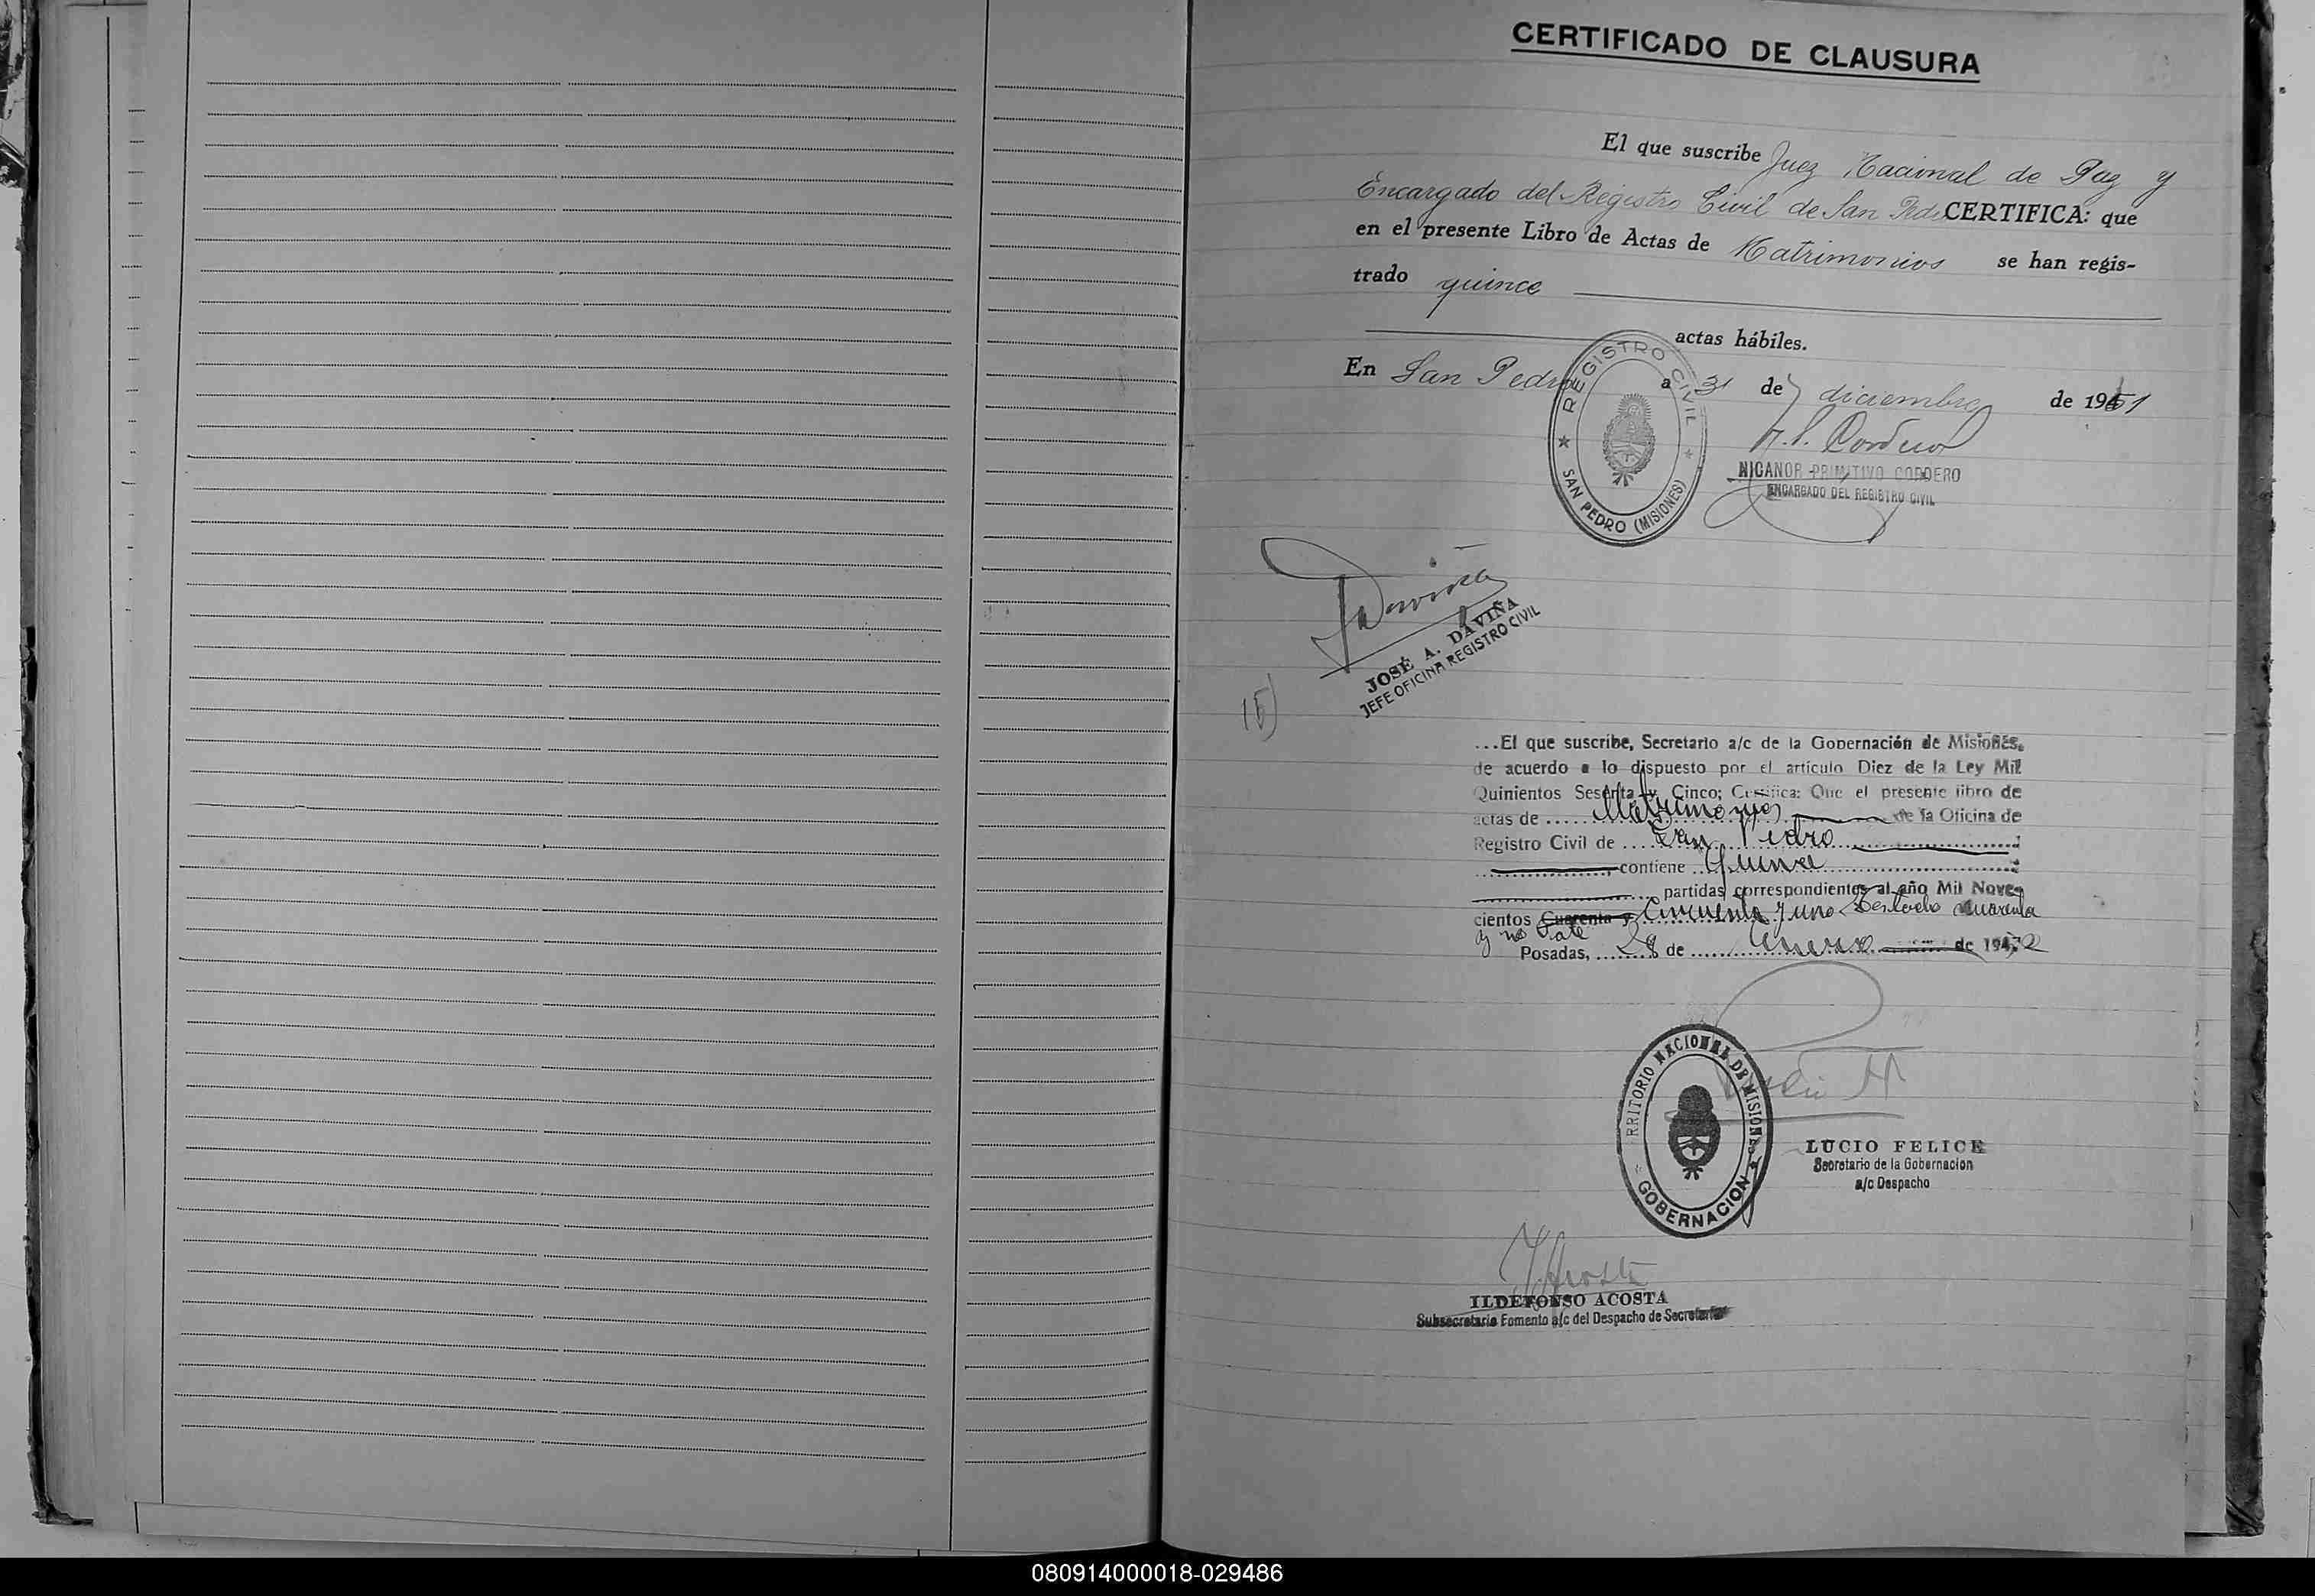 CERTIFICADO DE CLAUSURA
El que suscribe Juez Nacional de Paz y
Encargado del Registro Civil de San Pedro CERTIFICA: que
en el presente Libro de Actas de Matrimonios se han regis-
trado quince
actas hábiles.
En San Pedro a 31 de diciembre de 1951
REGISTRO CIVIL
SAN PEDRO (MISIONES)
N. P. Cordero
NICANOR PRIMITIVO CORDERO
ENCARGADO DEL REGISTRO CIVIL
Daviña
JOSÉ A. DAVIÑA
JEFE OFICINA REGISTRO CIVIL
15)
...El que suscribe, Secretario a/c de la Gobernación de Misiones,
de acuerdo a lo dispuesto por el artículo Diez de la Ley Mil
Quinientos Sesenta y Cinco; Certifica: Que el presente libro de
actas de Matrimonios de la Oficina de
Registro Civil de San Pedro
contiene Quince
partidas correspondientes al año Mil Nove-
cientos Cuarenta y Cincuenta y uno Testado cuarenta
y no Vale
Posadas, 28 de Enero de 1952
RRITORIO NACIONAL DE MISIONES
GOBERNACION
LUCIO FELICE
Secretario de la Gobernacion
a/c Despacho
I Acosta
ILDEFONSO ACOSTA
Subsecretario Fomento a/c del Despacho de Secretaria
080914000018-029486